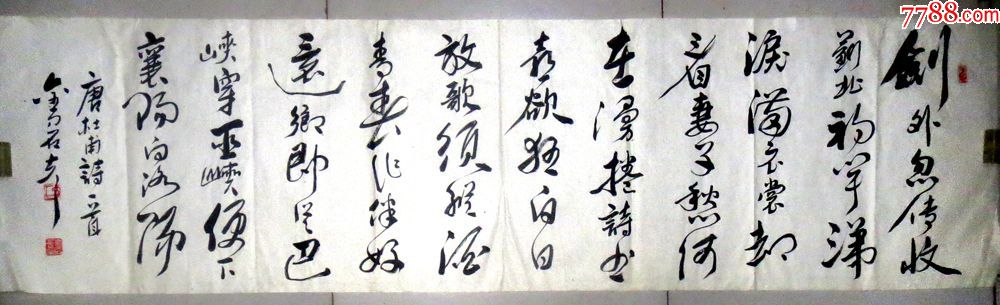 7788.com
劍外忽传收
薊北初闻涕
淚滿衣裳却
看妻子愁何
在漫捲詩书
喜欲狂白日
放歌須縱酒
青春作伴好
還鄉即从巴
峽穿巫峽便下
襄陽向洛陽
唐杜甫詩一首